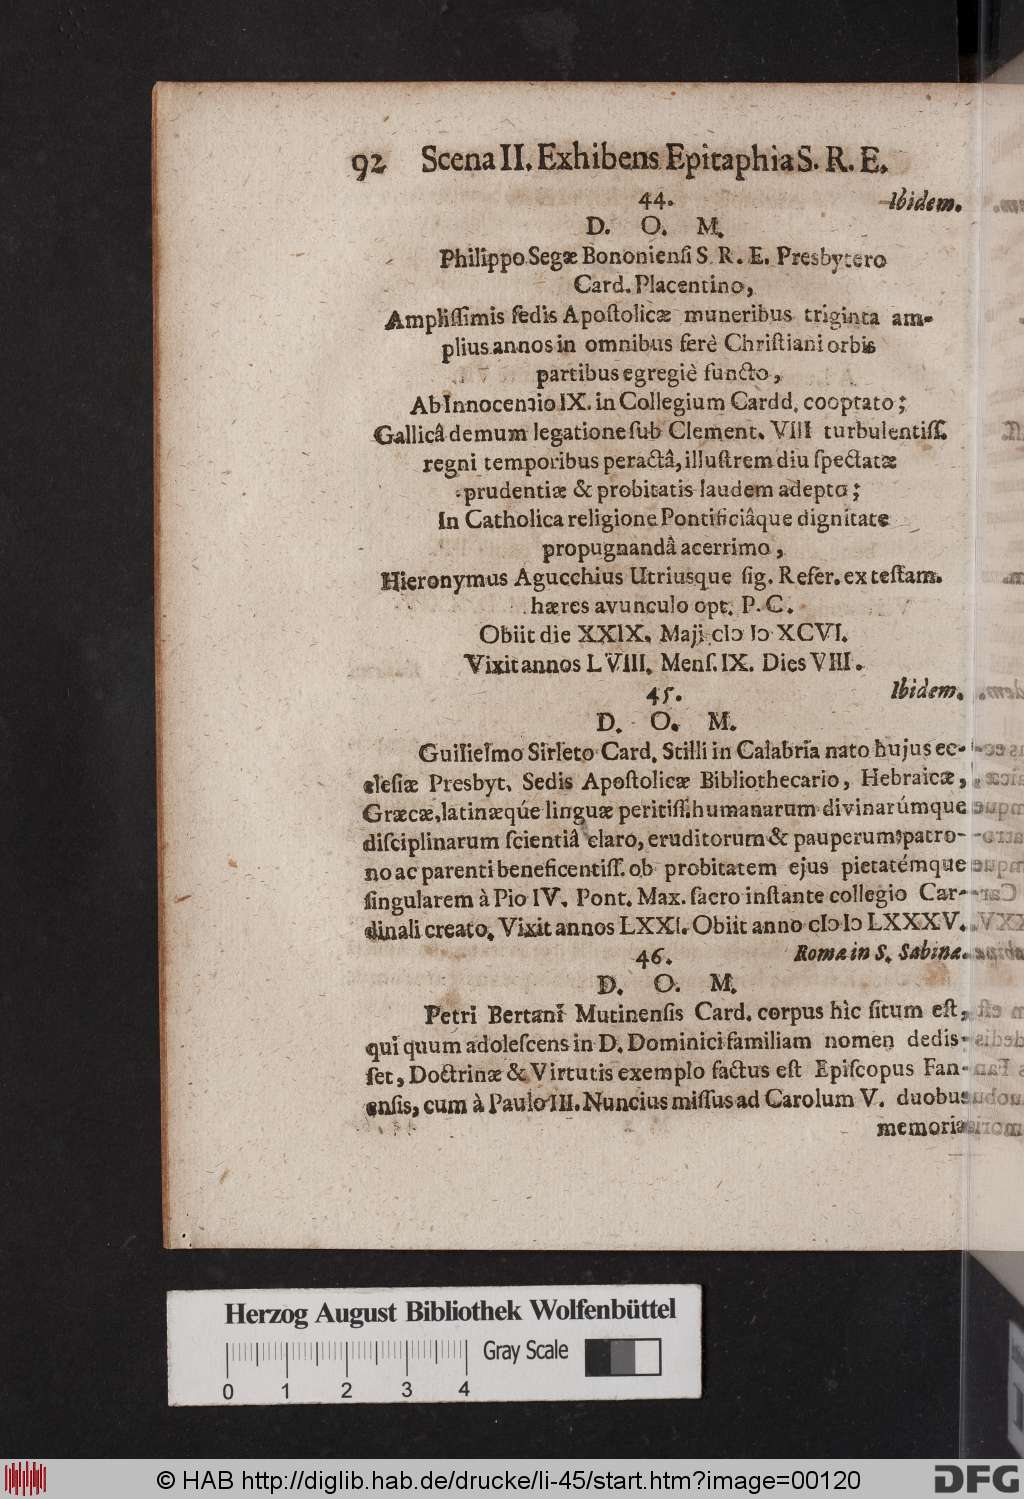 92 Scena II. Exhibens Epitaphia S. R. E.
44. Ibidem.
D. O. M.
Philippo Segæ Bononiensi S. R. E. Presbytero
Card. Placentino,
Amplissimis sedis Apostolicæ muneribus triginta am-
plius annos in omnibus ferè Christiani orbis
partibus egregiè functo,
Ab Innocentio IX. in Collegium Cardd. cooptato;
Gallicâ demum legatione sub Clement. VIII turbulentiss.
regni temporibus peractâ, illustrem diu spectatæ
prudentiæ & probitatis laudem adepto;
In Catholica religione Pontificiâque dignitate
propugnandâ acerrimo,
Hieronymus Agucchius Utriusque sig. Refer. ex testam.
hæres avunculo opt. P. C.
Obiit die XXIX. Maji cIↄ Iↄ XCVI.
Vixit annos LVIII. Mens. IX. Dies VIII.
45. Ibidem.
D. O. M.
Guilielmo Sirleto Card. Stilli in Calabria nato hujus ec-
clesiæ Presbyt. Sedis Apostolicæ Bibliothecario, Hebraicæ,
Græcæ, latinæqúe linguæ peritiss. humanarum divinarúmque
disciplinarum scientiâ claro, eruditorum & pauperum patro-
no ac parenti beneficentiss. ob probitatem ejus pietatémque
singularem à Pio IV. Pont. Max. sacro instante collegio Car-
dinali creato. Vixit annos LXXI. Obiit anno cIↄ Iↄ LXXXV.
46. Romæ in S. Sabina.
D. O. M.
Petri Bertani Mutinensis Card. corpus hìc situm est,
qui quum adolescens in D. Dominici familiam nomen dedis-
set, Doctrinæ & Virtutis exemplo factus est Episcopus Fan-
ensis, cum à Paulo III. Nuncius missus ad Carolum V. duobus
memoria
Herzog August Bibliothek Wolfenbüttel
Gray Scale
0 1 2 3 4
© HAB http://diglib.hab.de/drucke/li-45/start.htm?image=00120
DFG